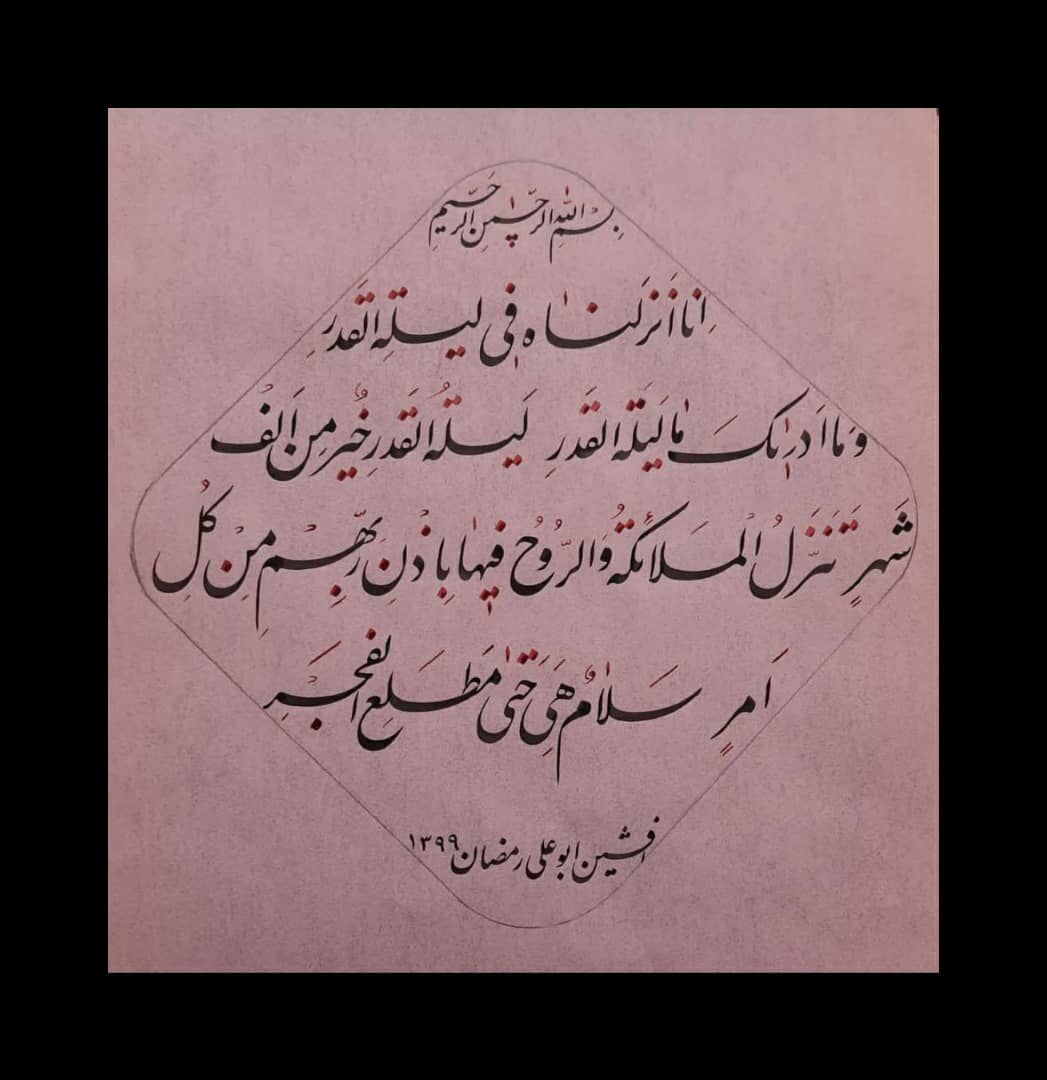 بِسْمِ اللّٰهِ الرَّحْمٰنِ الرَّحیمِ
اِنا اَنزَلناٰه فِی لیلةِ القَدرِ
وَ ما اَدریٰکَ ماٰ لَیلَة القَدرِ لَیلةُ القَدرِ خَیرٌ مِن اَلفْ
شَهرٍ تَنَزَّلُ الْمَلائکةُ وَالرُّوحُ فیهاٰ بِاِذْنِ رَبِّهِمْ مِنْ کُلِ
اَمرٍ سَلاٰمٌ هِیَ حَتیٰ مَطلَعِ الفَجرِ
افشین ابوعلی رمضان ۱۳۹۹